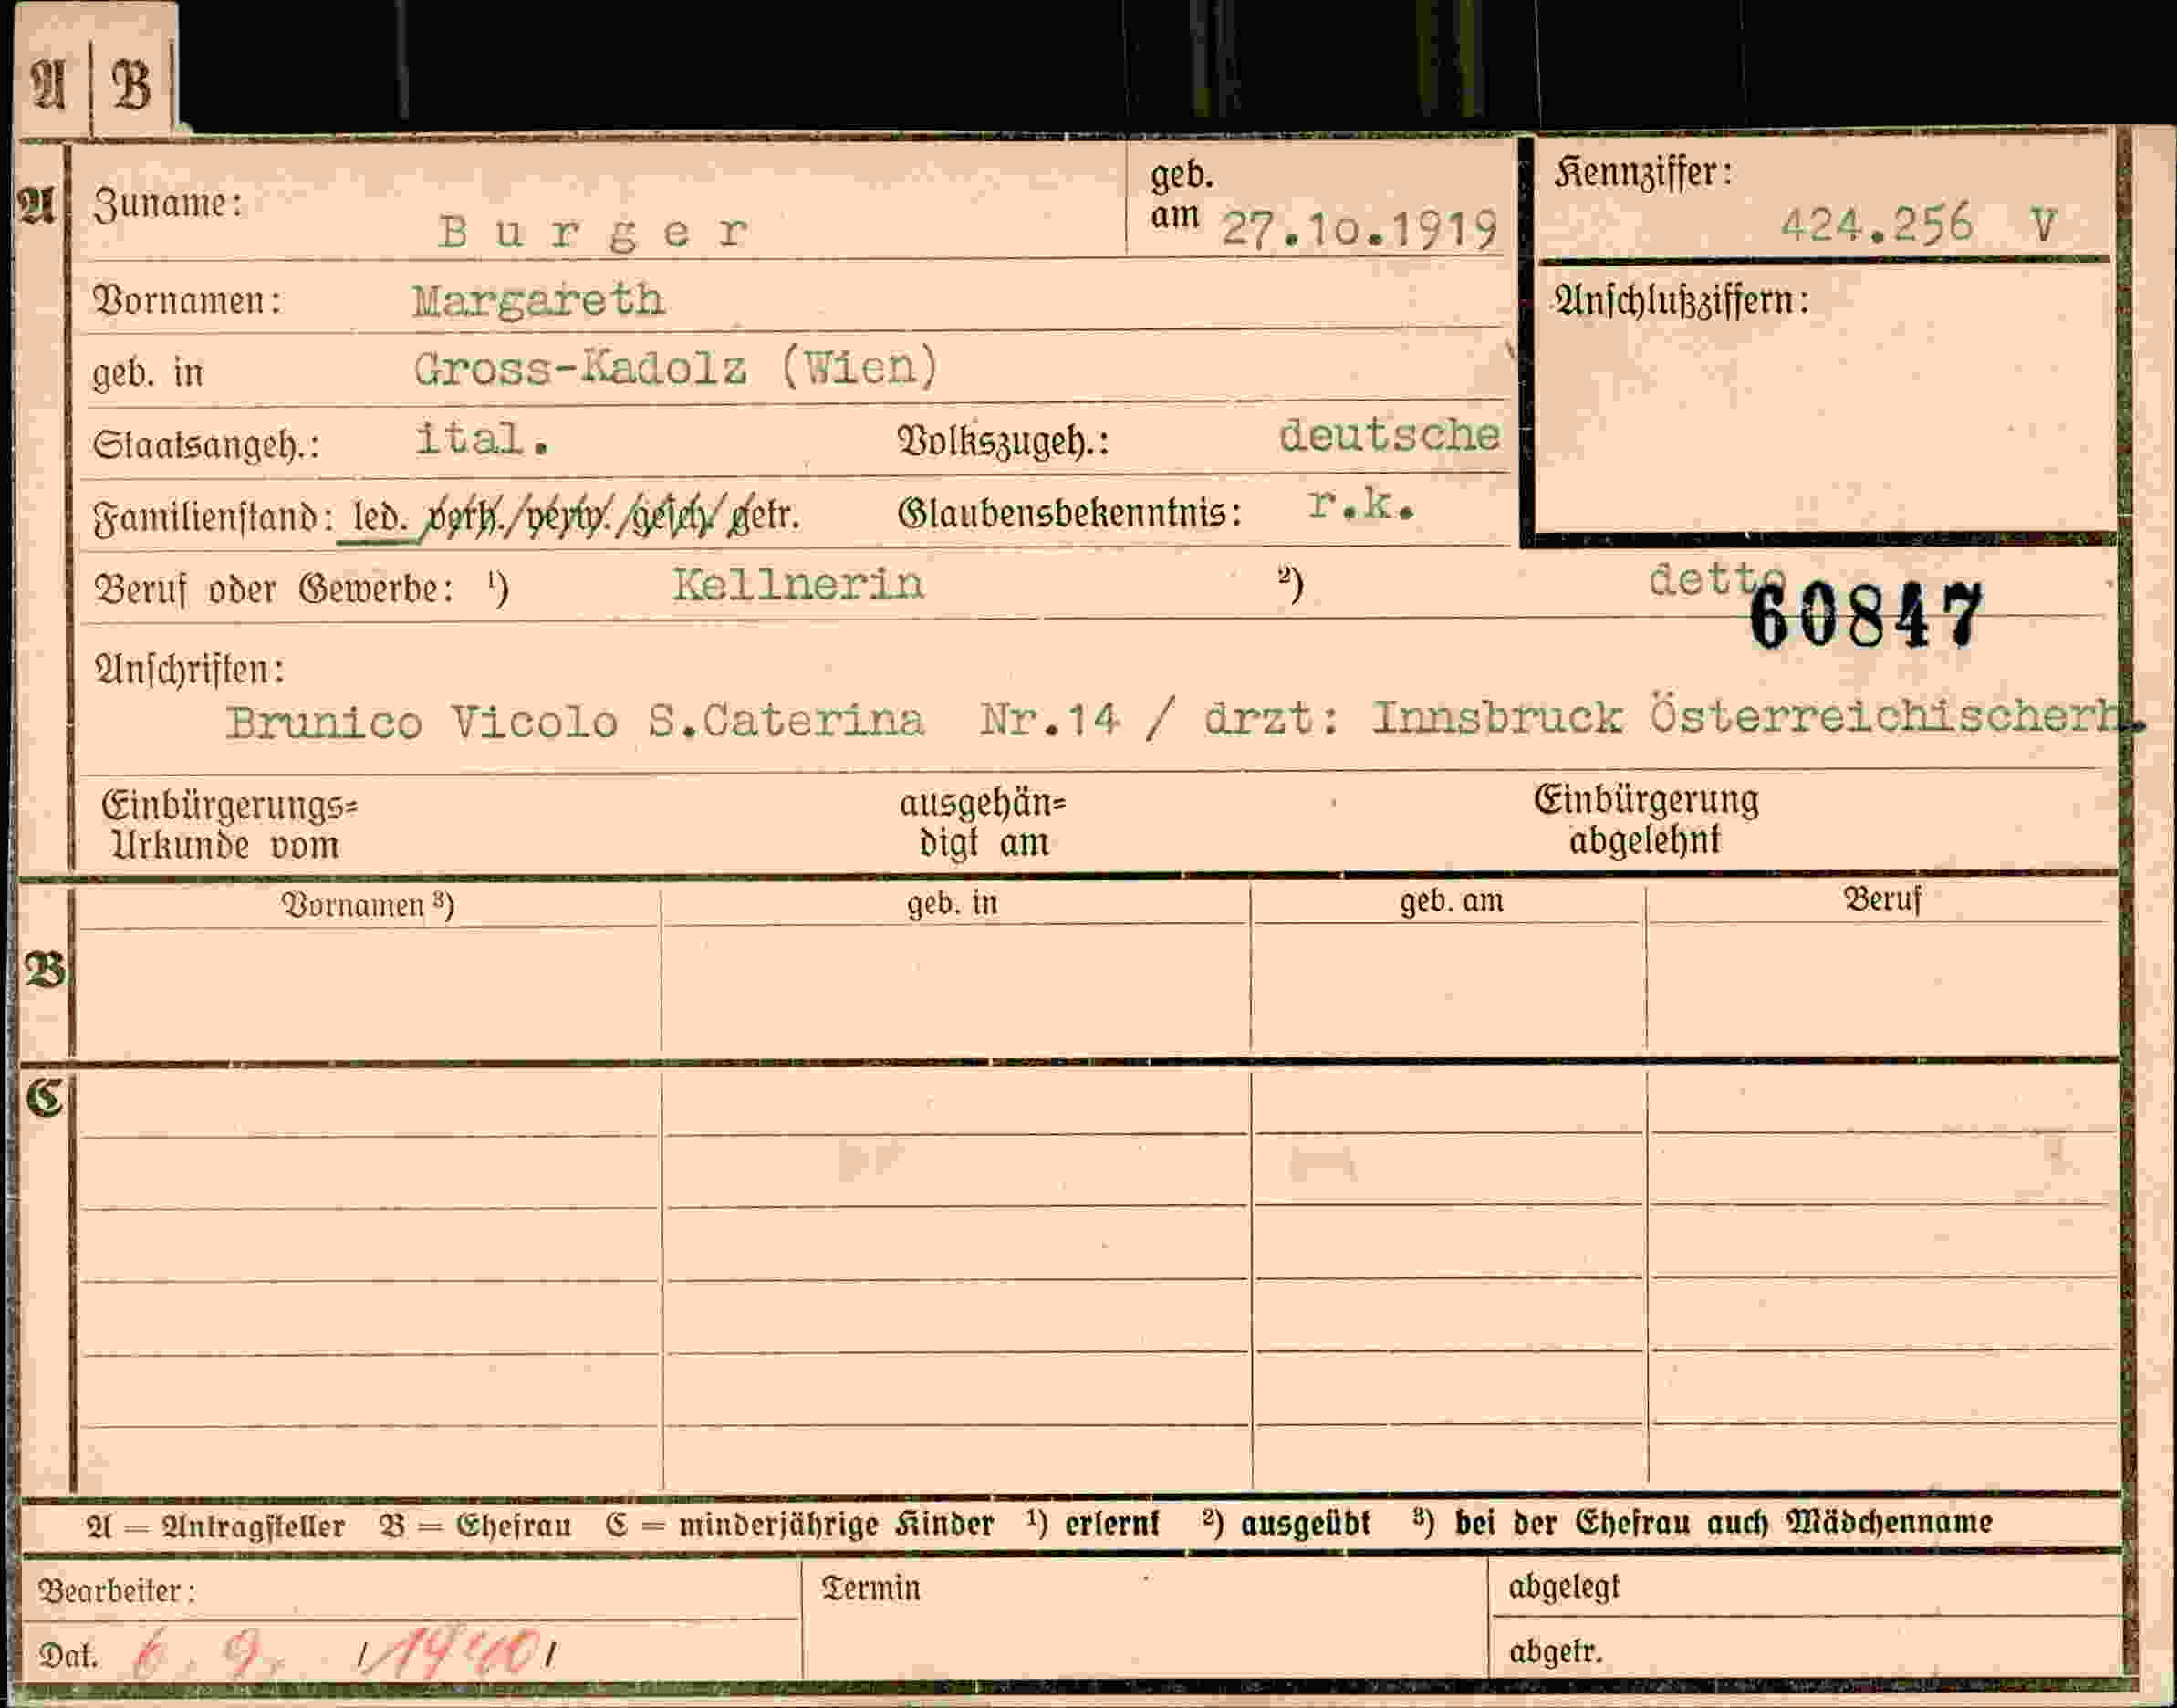 A B
A Zuname: Burger geb. am 27.10.1919 Kennziffer: 424.256 V
Vornamen: Margareth Anschlußziffern:
geb. in Gross-Kadolz (Wien)
Staatsangeh.: ital. Volkszugeh.: deutsche
Familienstand: led. verh./verw./gesch/getr. Glaubensbekenntnis: r.k.
Beruf oder Gewerbe: ¹) Kellnerin ²) detto
60847
Anschriften:
Brunico Vicolo S.Caterina Nr.14 / drzt: Innsbruck Österreichischerh.
Einbürgerungs= ausgehän= Einbürgerung
Urkunde vom digt am abgelehnt
Vornamen ³) geb. in geb. am Beruf
B
C
A = Antragsteller B = Ehefrau C = minderjährige Kinder ¹) erlernt ²) ausgeübt ³) bei der Ehefrau auch Mädchenname
Bearbeiter: Termin abgelegt
Dat. 6. 9. / 1940 / abgetr.